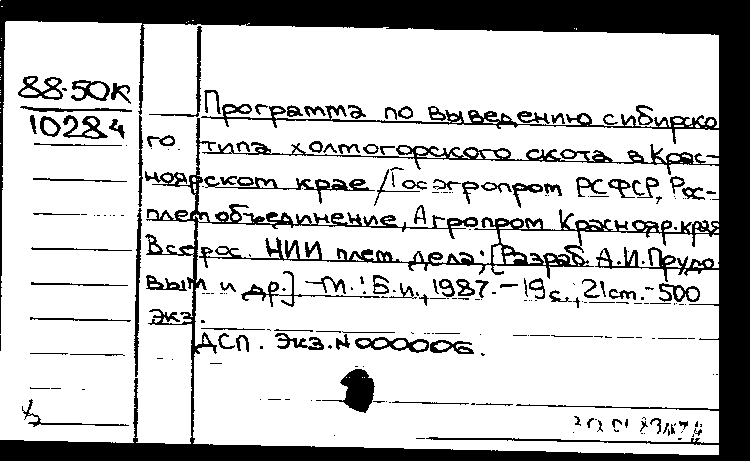 88-50К
10284
Программа по выведению сибирско
го типа холмогорского скота в Крас-
ноярском крае / Госагропром РСФСР, Рос-
племобъединение, Агропром Краснояр. края
Всерос. НИИ плем. дела; [Разраб. А.И. Прудо
вым и др.]. - М.: Б.и., 1987. - 19 с., 21 см. - 500
экз.
ДСП. Экз. N 000006.